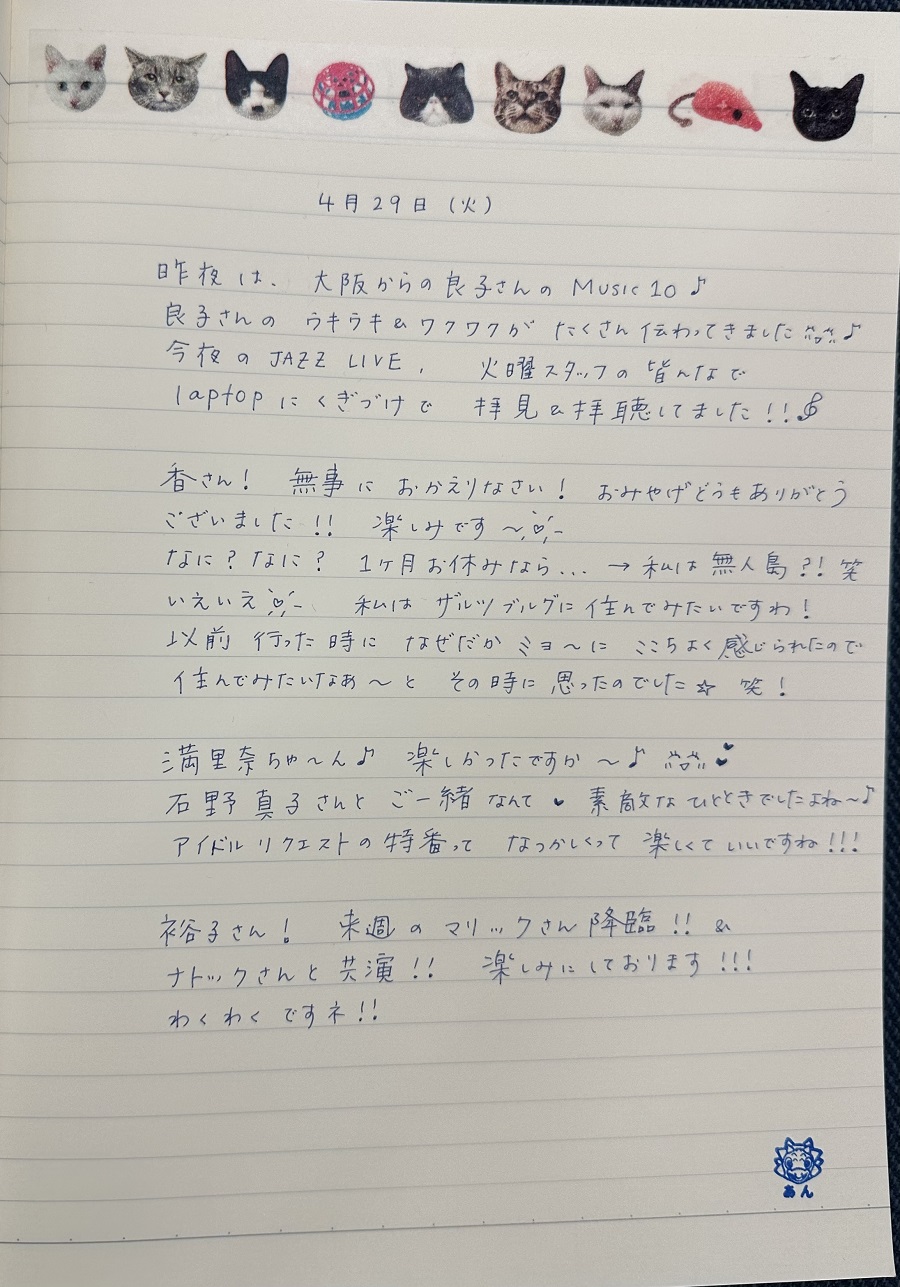 4月29日(火)
昨夜は、大阪からの良子さんの Music 10♪
良子さんの ウキウキ&ワクワクが たくさん伝わってきました♪
今夜の JAZZ LIVE、 火曜スタッフの皆んなで
laptopにくぎづけで 拝見&拝聴してました!!
香さん! 無事に おかえりなさい! おみやげどうもありがとう
ございました!! 楽しみです〜♡
なに?なに? 1ヶ月お休みなら... → 私は無人島?! 笑
いえいえ♡ 私は ザルツブルグに住んでみたいですわ!
以前 行った時に なぜだか ミョ〜に ここちよく感じられたので
住んでみたいなあ〜と その時に思ったのでした☆ 笑!
満里奈ちゃ〜ん♪ 楽しかったですか〜♪
石野真子さんと ご一緒なんて ♥ 素敵なひとときでしたよね〜♪
アイドルリクエストの特番って なつかしくって 楽しくていいですね!!!
裕子さん! 来週のマリックさん降臨!! &
ナトックさんと共演!! 楽しみにしております!!!
わくわくですネ!!
あん